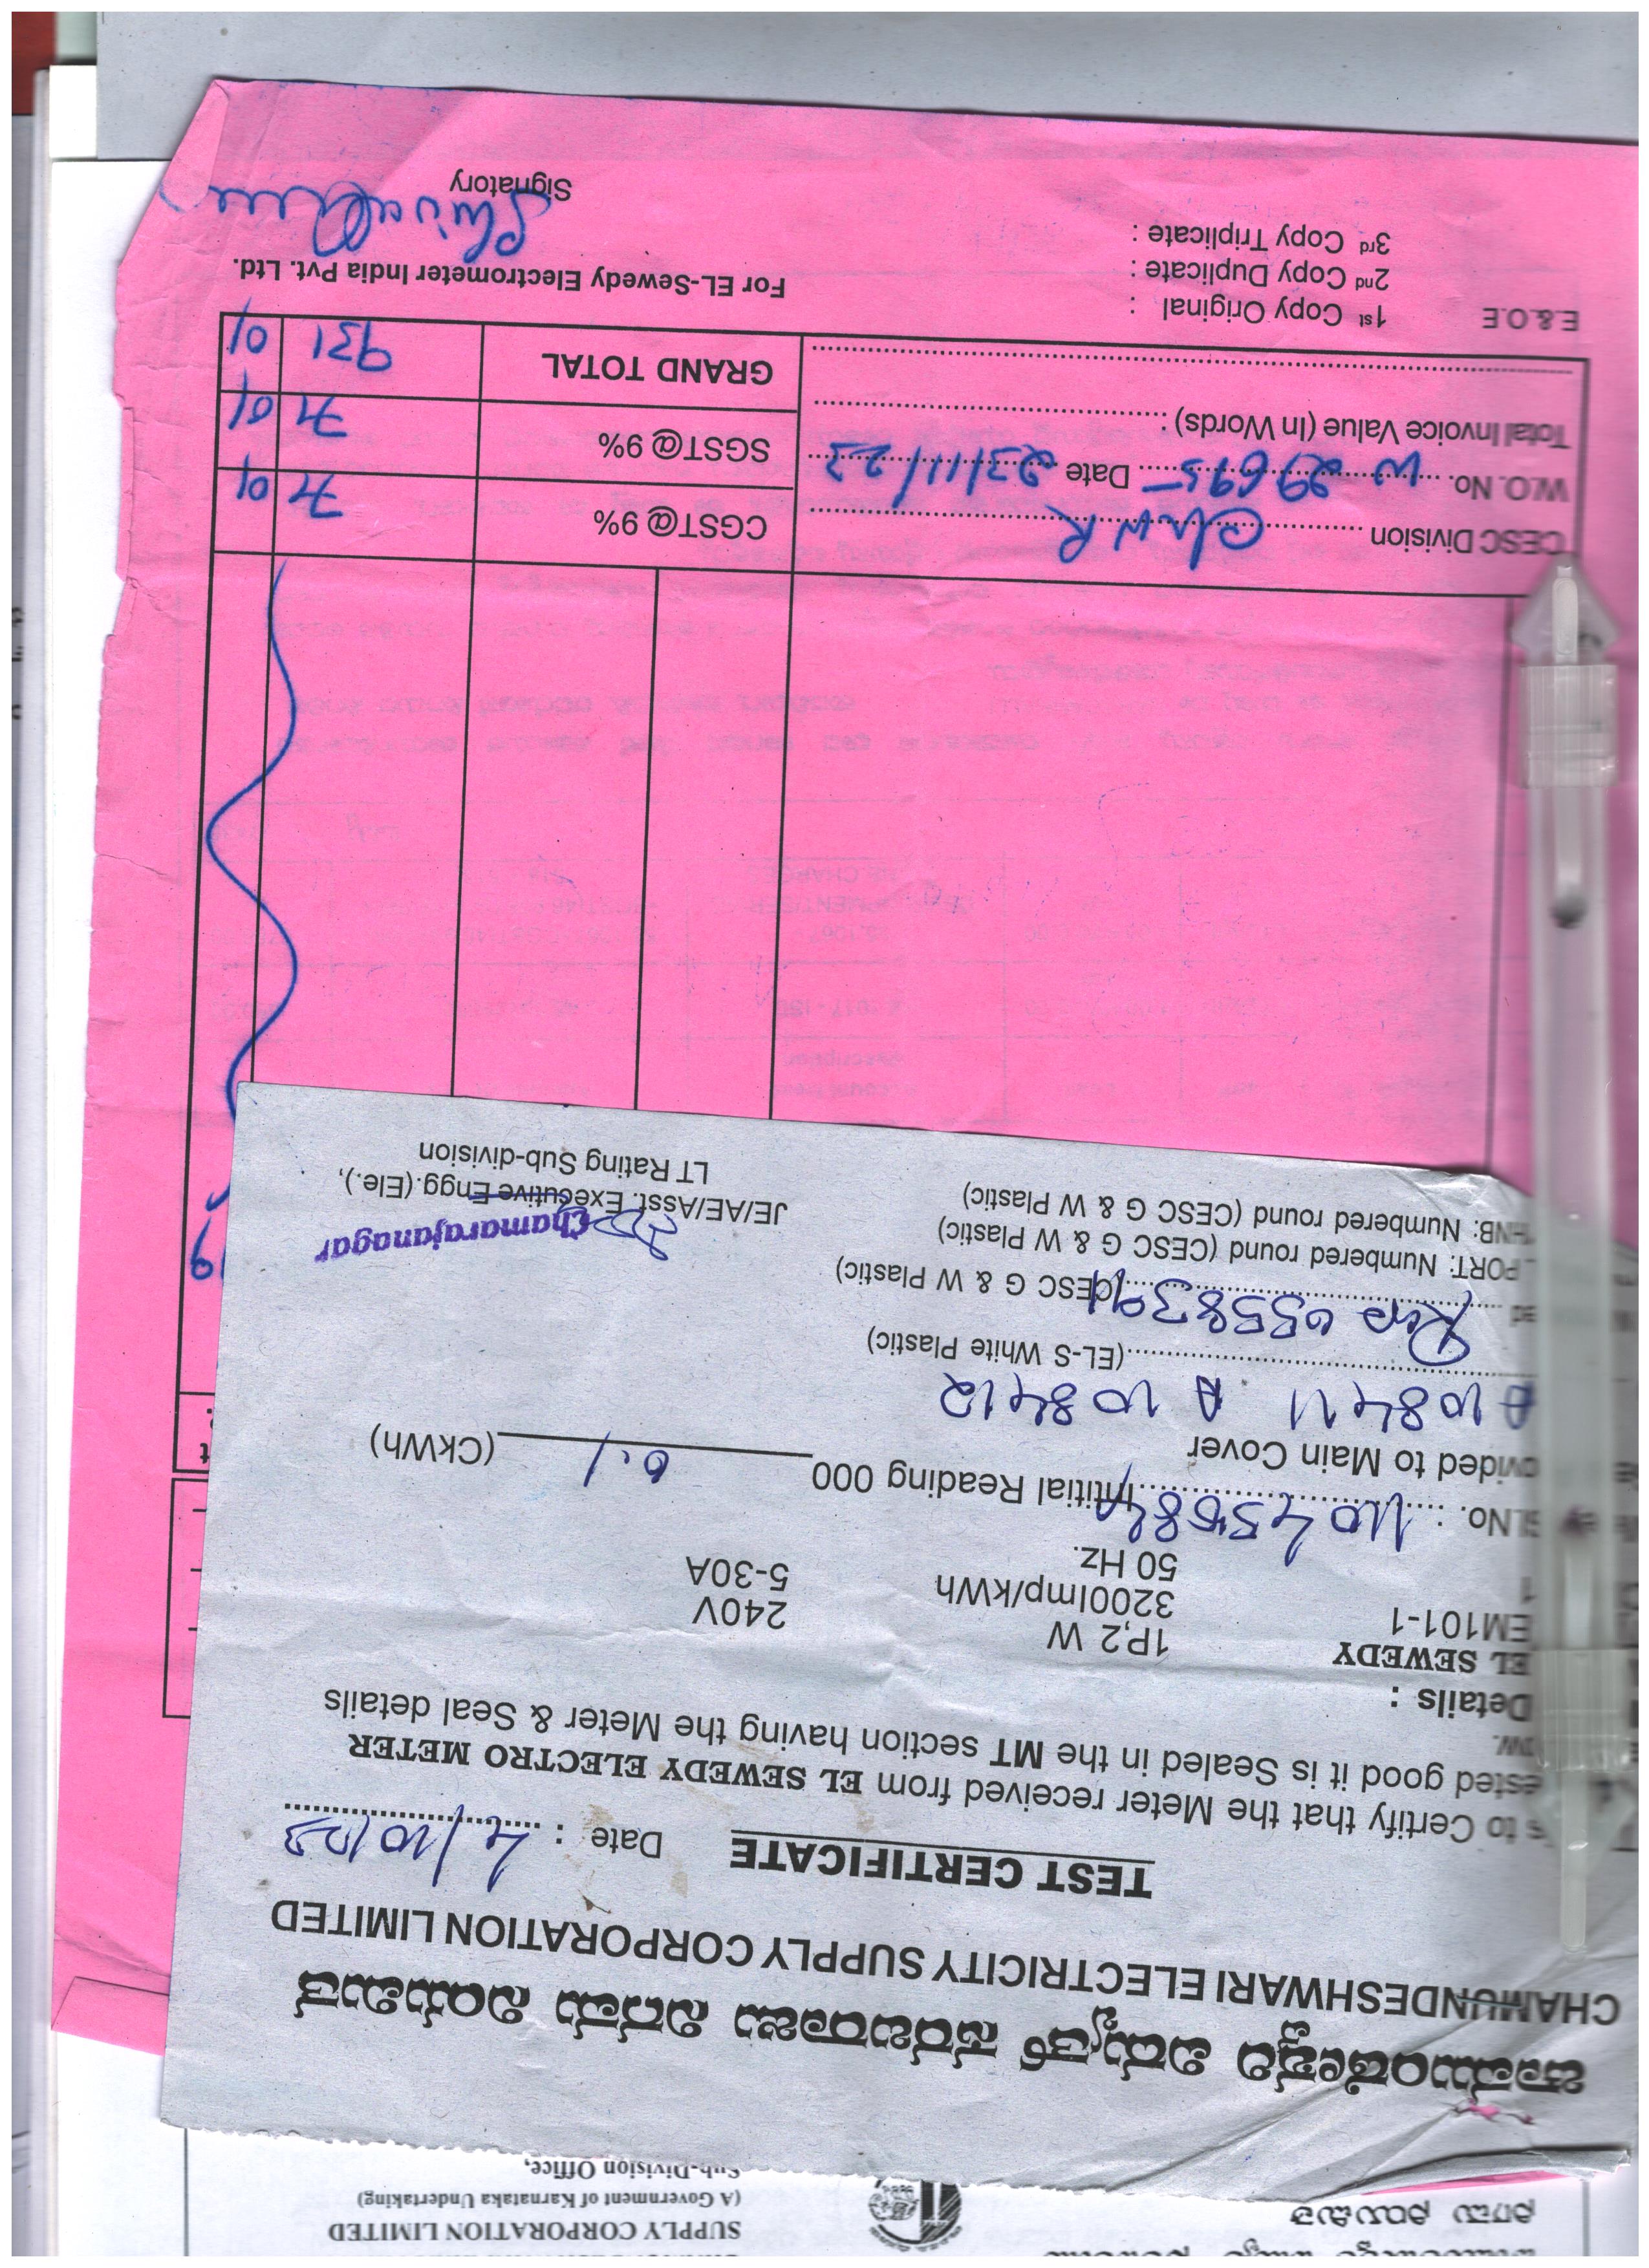 SUPPLY CORPORATION LIMITED
(A Government of Karnataka Undertaking)
Sub-Division Office,
ಚಾಮುಂಡೇಶ್ವರಿ ವಿದ್ಯುತ್ ಸರಬರಾಜು ನಿಗಮ ನಿಯಮಿತ
CHAMUNDESHWARI ELECTRICITY SUPPLY CORPORATION LIMITED
TEST CERTIFICATE Date : 4/10/23
to Certify that the Meter received from EL SEWEDY ELECTRO METER
ested good it is Sealed in the MT section having the Meter & Seal details
Details :
EL SEWEDY 1P,2 W 240V
EM101-1 3200Imp/kWh 5-30A
1 50 Hz.
SLNo. : Intitial Reading 000 0.1 (CkWh)
ovided to Main Cover
A 108411 A 108412
(EL-S White Plastic)
(CESC G & W Plastic)
PORT: Numbered round (CESC G & W Plastic)
HNB: Numbered round (CESC G & W Plastic)
Chamarajanagar
JE/AE/Asst. Executive Engg.(Ele.),
LT Rating Sub-division
CGST@ 9% 71 01
SGST@ 9% 71 01
GRAND TOTAL 931 01
CESC Division
W.O. No. 29695 Date 23/11/23
Total Invoice Value (In Words) :
E.& O.E
1st Copy Original :
2nd Copy Duplicate :
3rd Copy Triplicate :
For EL-Sewedy Electrometer India Pvt. Ltd.
Signatory